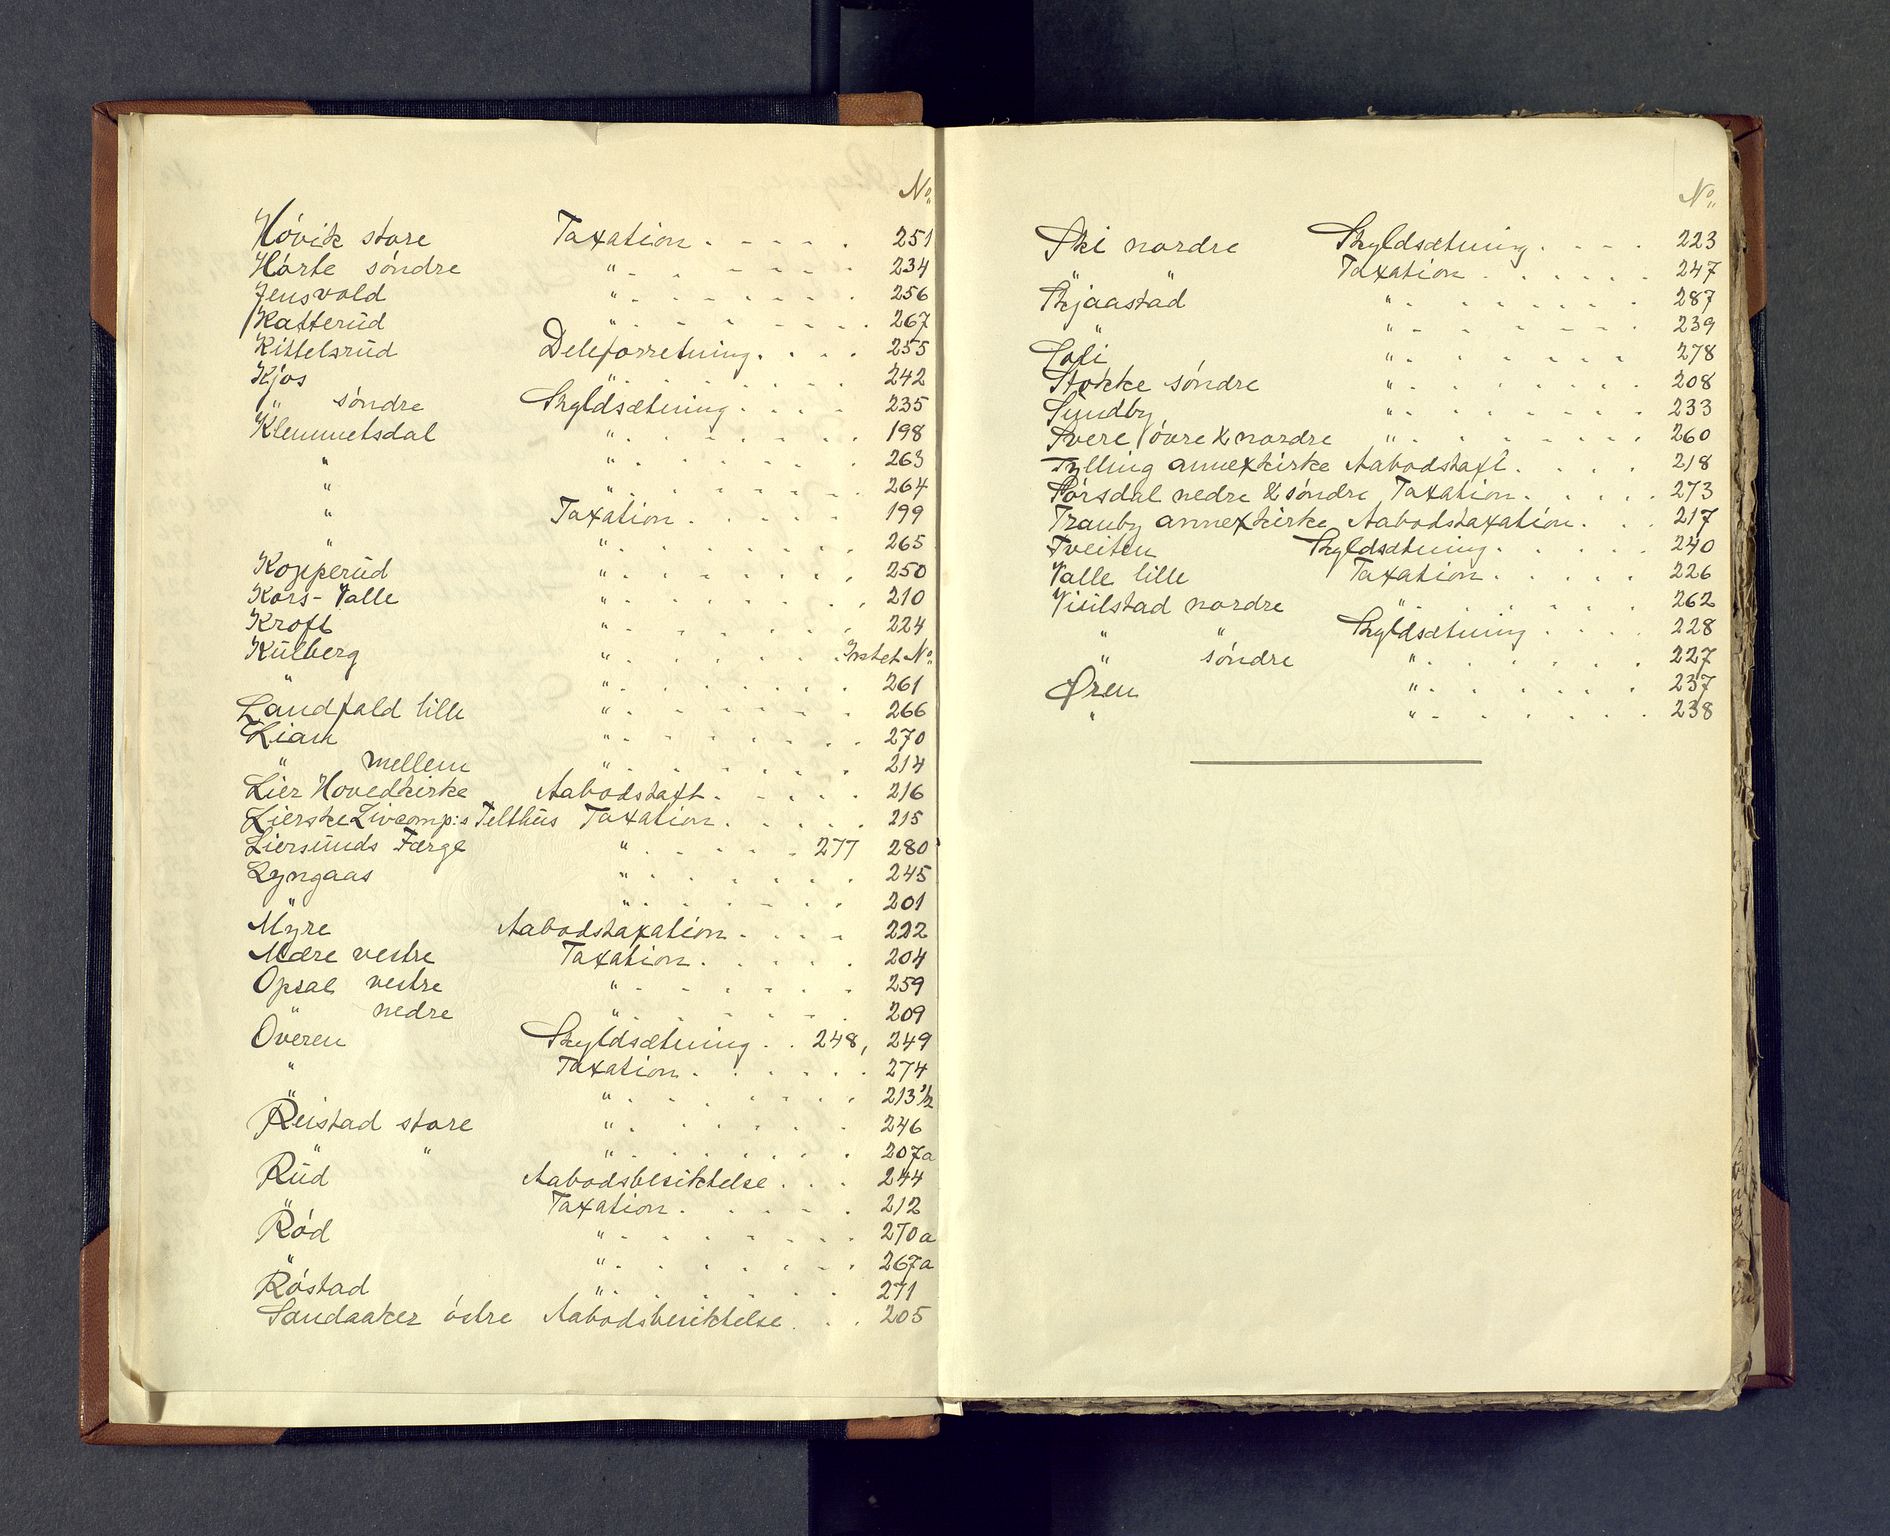 No
Hövik store Taxation . - - - . 251
Hörte söndre " - - - - - - 234
Jensvold " - - - - - - 256
Katterud " - - - - - - 267
Kittelsrud Deleforretning . . . . 255
Kjos " . . . . . . 242
" söndre Skyldsætning . . . . 235
Klemmetsdal " . . . . . . 198
" " . . . . . . 263
" " . . . . . . 264
" Taxation . . . . . 199
" " . . . . . . 265
Kopperud " . . . . . . 250
Kors-Valle " . . . . . . 210
Kroft " . . . . . . 224
Kulberg " . . . . . . Intet No
" " . . . . . . 261
Landfald lille " . . . . . . 266
Liam " . . . . . . 270
" mellem " . . . . . . 214
Lier Hovedkirke Aabodstaxt . . . . . 216
Lierske Livcomp:s Telthus Taxation . . . . . 215
Liersunds Færge " . . . . . 277 280
Lyngaas " . . . . . . 245
" " . . . . . . 201
Myre Aabodstaxation . . . . 222
Mære vestre Taxation . . . . . 204
Opsal vestre " . . . . . . 259
" nedre " . . . . . . 209
Overen Skyldsætning . . 248, 249
" Taxation . . . . . . 274
" " . . . . . . 213 1/2
Reistad store " . . . . . . 246
" " " . . . . . . 207a
Rud Aabodsbesiktelse . . . 244
" Taxation . . . . . 212
Röd " . . . . . . 270a
" " . . . . . . 267a
Röstad " . . . . . . 271
Sandaaker östre Aabodsbesiktelse . . . 205
No
Ski nordre Skyldsætning . . . . 223
" Taxation . . . . . . 247
Skjaastad " . . . . . . 287
" " . . . . . . 239
Soli " . . . . . . 278
Stokke söndre " . . . . . . 208
Sundby " . . . . . . 233
Svere övre & nordre " . . . . . . 260
Tylling annexkirke Aabodstaxt . . . . 218
Törsdal nedre & söndre Taxation . . . . . 273
Tranby annexkirke Aabodstaxation . . . 217
Tveiten Skyldsætning . . . . . 240
Valle lille Taxation . . . . . 226
Viülstad nordre " . . . . . . 262
" " Skyldsætning . . . . 228
" söndre " . . . . . . 227
Øren " . . . . . . 237
" " . . . . . . 238